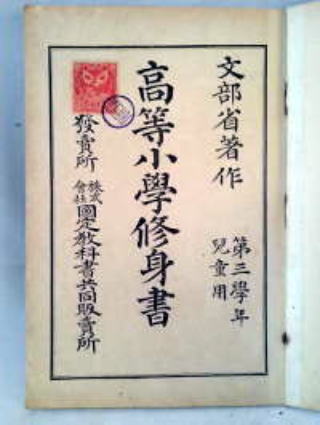 文部省著作
第三學年
兒童用
高等小學修身書
發賣所 株式會社 國定教科書共同販賣所